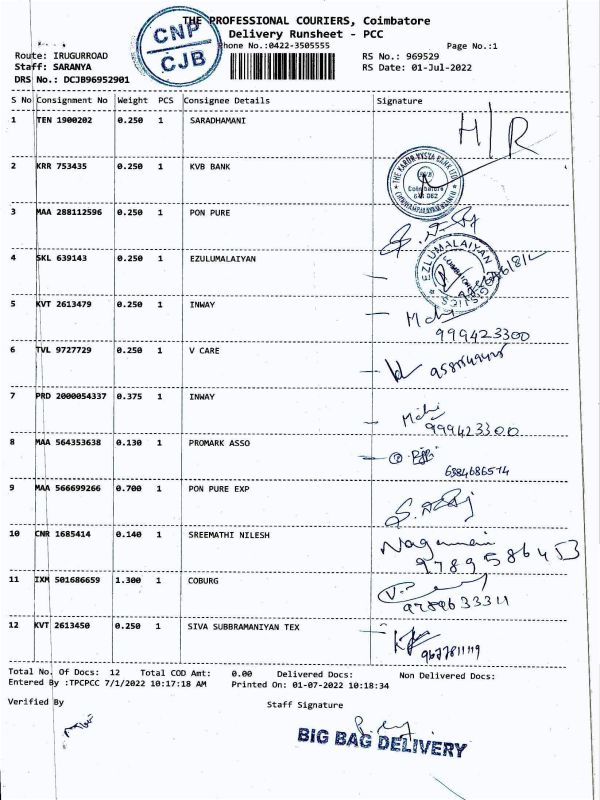 THE PROFESSIONAL COURIERS, Coimbatore
Delivery Runsheet - PCC
CNP
CJB
Phone No.:0422-3505555 Page No.:1
Route: IRUGURROAD RS No.: 969529
Staff: SARANYA RS Date: 01-Jul-2022
DRS No.: DCJB96952901
S No Consignment No Weight PCS Consignee Details Signature
1 TEN 1900202 0.250 1 SARADHAMANI H/R
2 KRR 753435 0.250 1 KVB BANK
THE KARUR VYSYA BANK LTD
Coimbatore
3 MAA 288112596 0.250 1 PON PURE
4 SKL 639143 0.250 1 EZULUMALAIYAN
EZLUMALAIYAN
5 KVT 2613479 0.250 1 INWAY
999423300
6 TVL 9727729 0.250 1 V CARE
7 PRD 2000054337 0.375 1 INWAY
999423300
8 MAA 564353638 0.130 1 PROMARK ASSO
9 MAA 566699266 0.700 1 PON PURE EXP
10 CNR 1685414 0.140 1 SREEMATHI NILESH
9789586453
11 IXM 501686659 1.300 1 COBURG
12 KVT 2613450 0.250 1 SIVA SUBBRAMANIYAN TEX
9677811119
Total No. Of Docs: 12 Total COD Amt: 0.00 Delivered Docs: Non Delivered Docs:
Entered By :TPCPCC 7/1/2022 10:17:18 AM Printed On: 01-07-2022 10:18:34
Verified By Staff Signature
BIG BAG DELIVERY